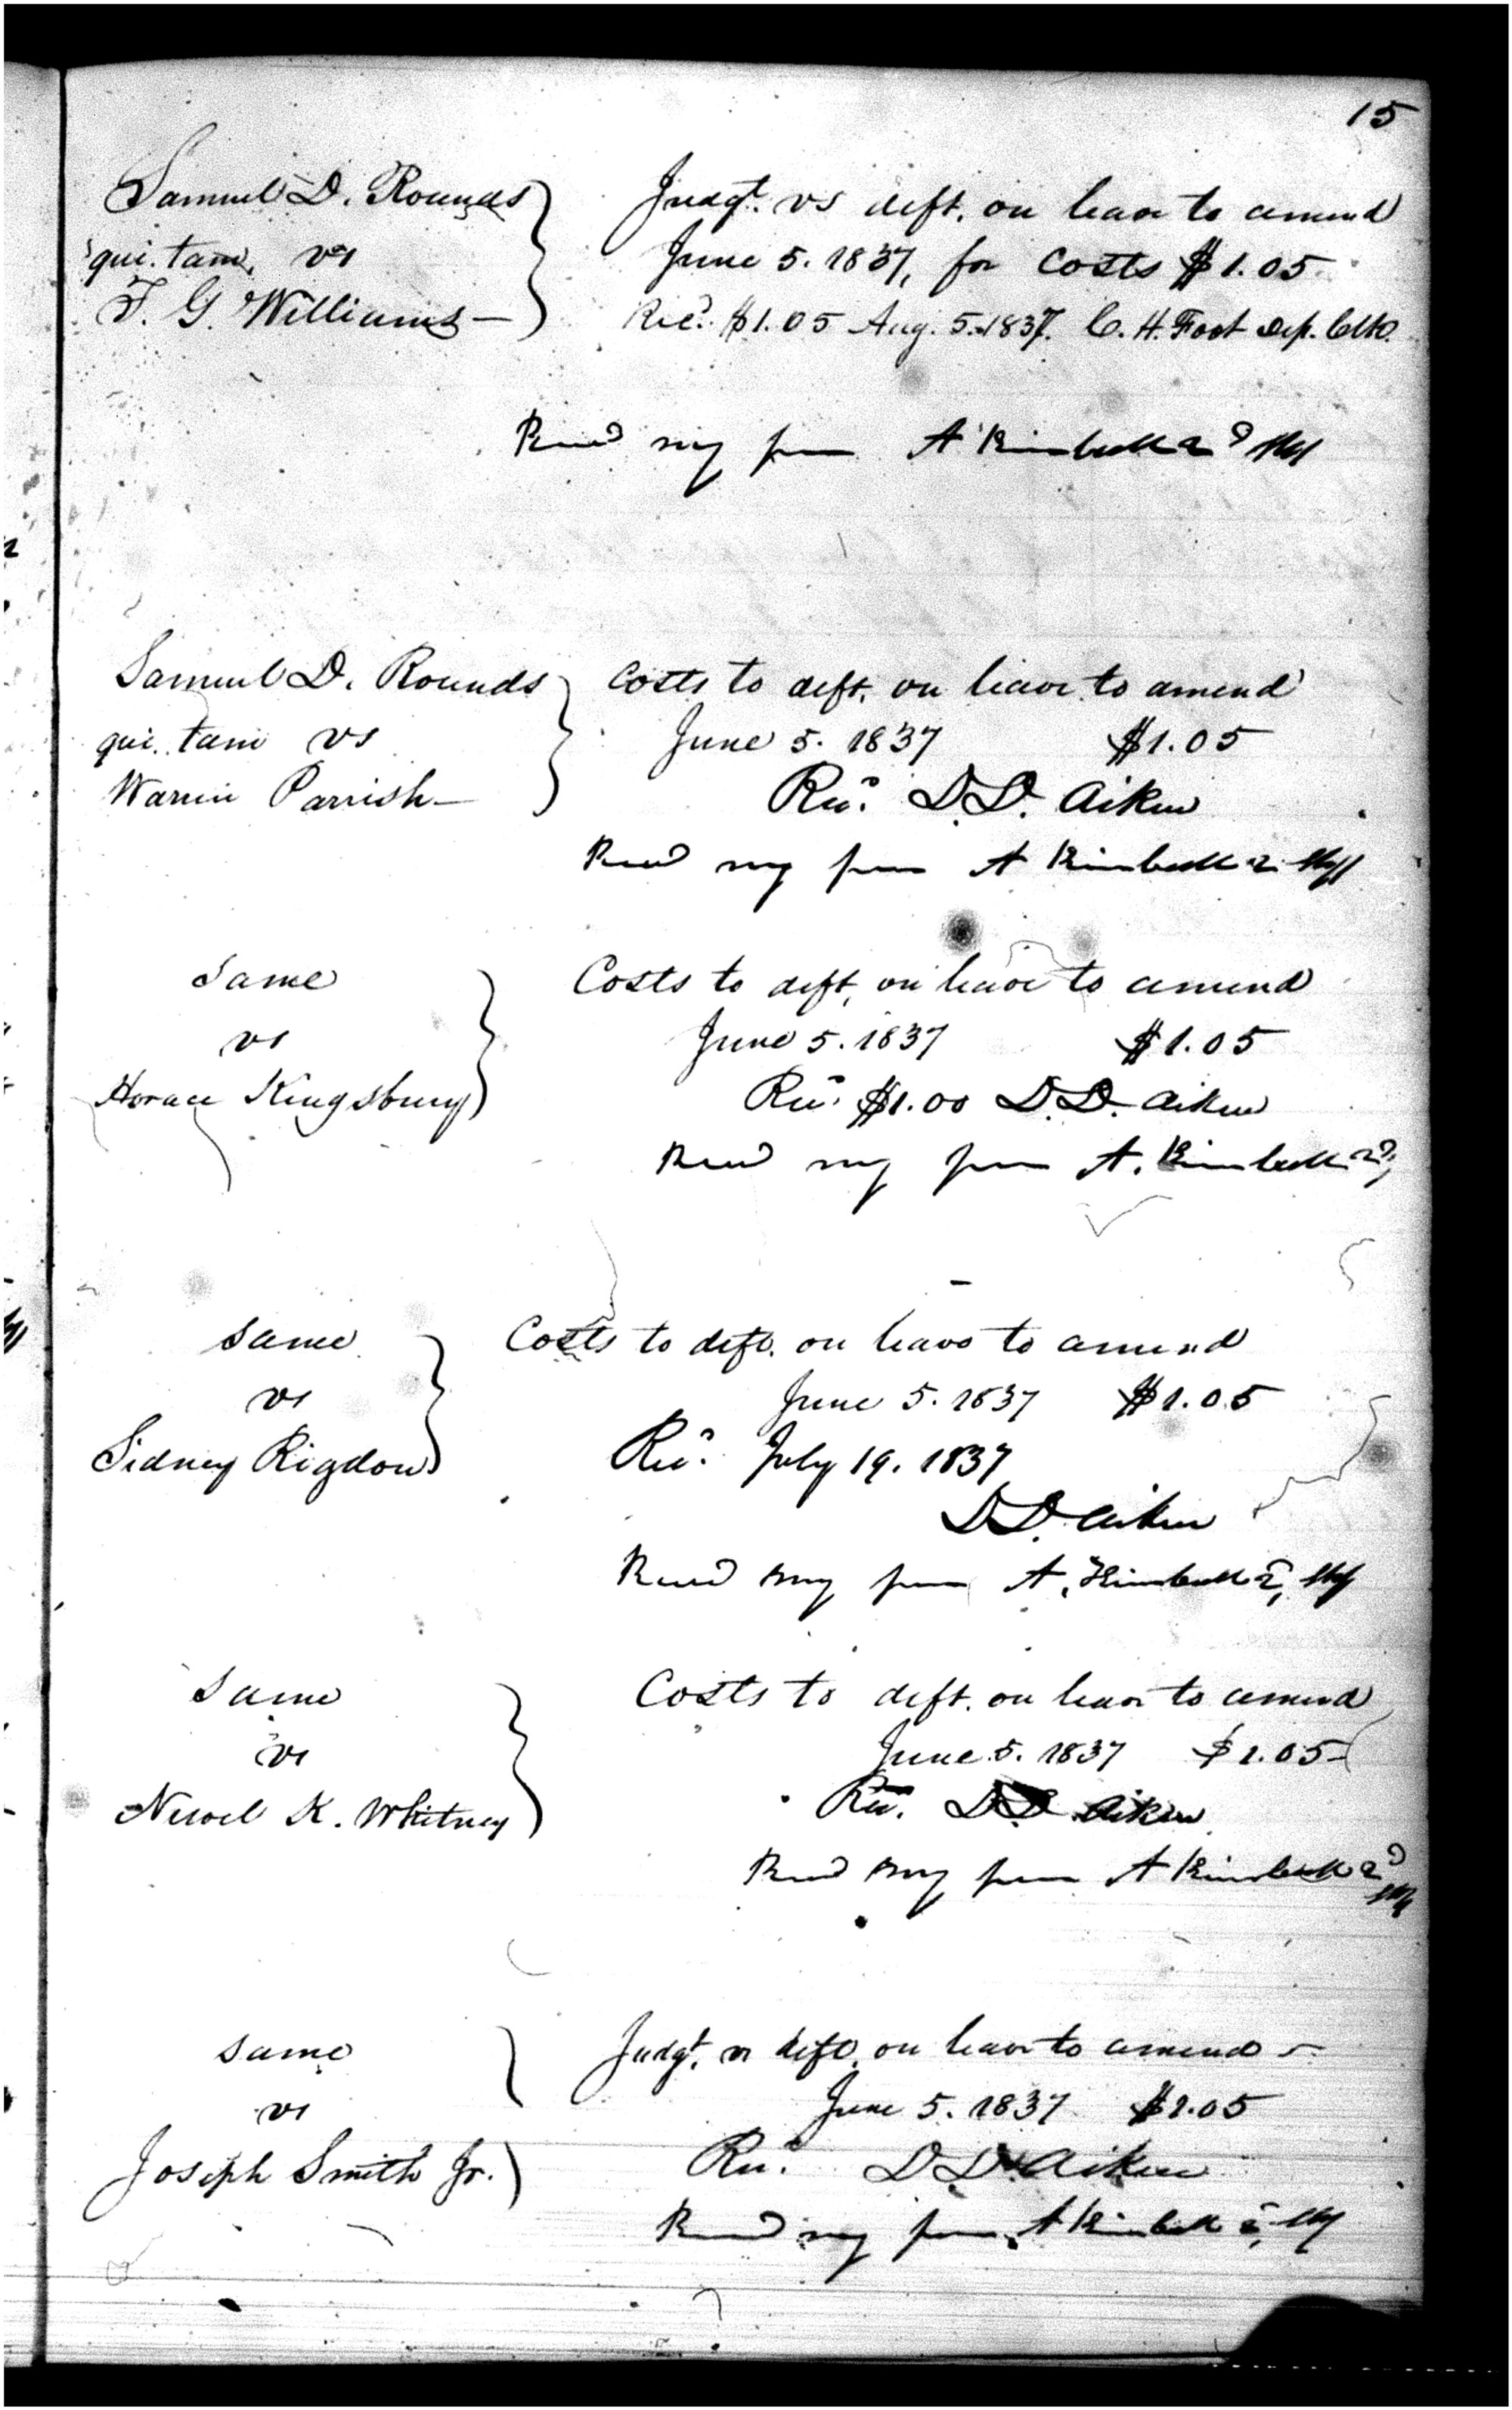 15
Samuel D. Rounds
qui. tam. vs
F. G. Williams —
Judgt. vs deft. on leave to amend
June 5. 1837, for Costs $1.05
Recd. $1.05 Aug. 5. 1837. C. H. Foot Dep. Clk.
Recd my fees A Kimball 2d Shff
Samuel D. Rounds
qui. tam vs
Warren Parrish —
Costs to deft. on leave to amend
June 5. 1837 $1.05
Recd. D. D. Aiken
Recd my fees A Kimball 2 Shff
Same
vs
Horace Kingsbury
Costs to deft. on leave to amend
June 5. 1837 $1.05
Recd. $1.00 D. D. Aiken
Recd my fees A. Kimball 2d,
Same
vs
Sidney Rigdon
Costs to deft. on leave to amend
June 5. 1837 $1.05
Recd. July 19. 1837
D D. Aiken
Recd my fees A, Kimball 2, Shff
Same
vs
Newel K. Whitney
Costs to deft. on leave to amend
June 5. 1837 $1.05
Recd. D D Aiken
Recd my fees A Kimball 2d
Shff
Same
vs
Joseph Smith Jr.
Judgt. vs deft. on leave to amend —
June 5. 1837 $1.05
Recd. D D Aiken
Recd my fees A Kimball 2, Shff